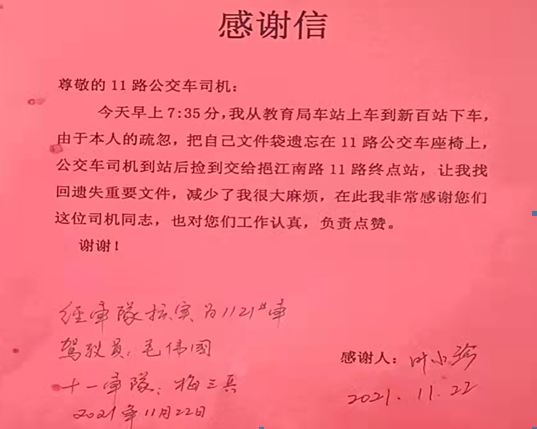 感谢信
尊敬的11路公交车司机：
今天早上7:35分，我从教育局车站上车到新百站下车，
由于本人的疏忽，把自己文件袋遗忘在11路公交车座椅上，
公交车司机到站后捡到交给挹江南路11路终点站，让我找
回遗失重要文件，减少了我很大麻烦，在此我非常感谢您们
这位司机同志，也对您们工作认真，负责点赞。
谢谢！
经车队核实为1121#车
驾驶员：毛伟国
十一车队：梅三兵
2021年11月22日
感谢人：叶小
2021.11.22